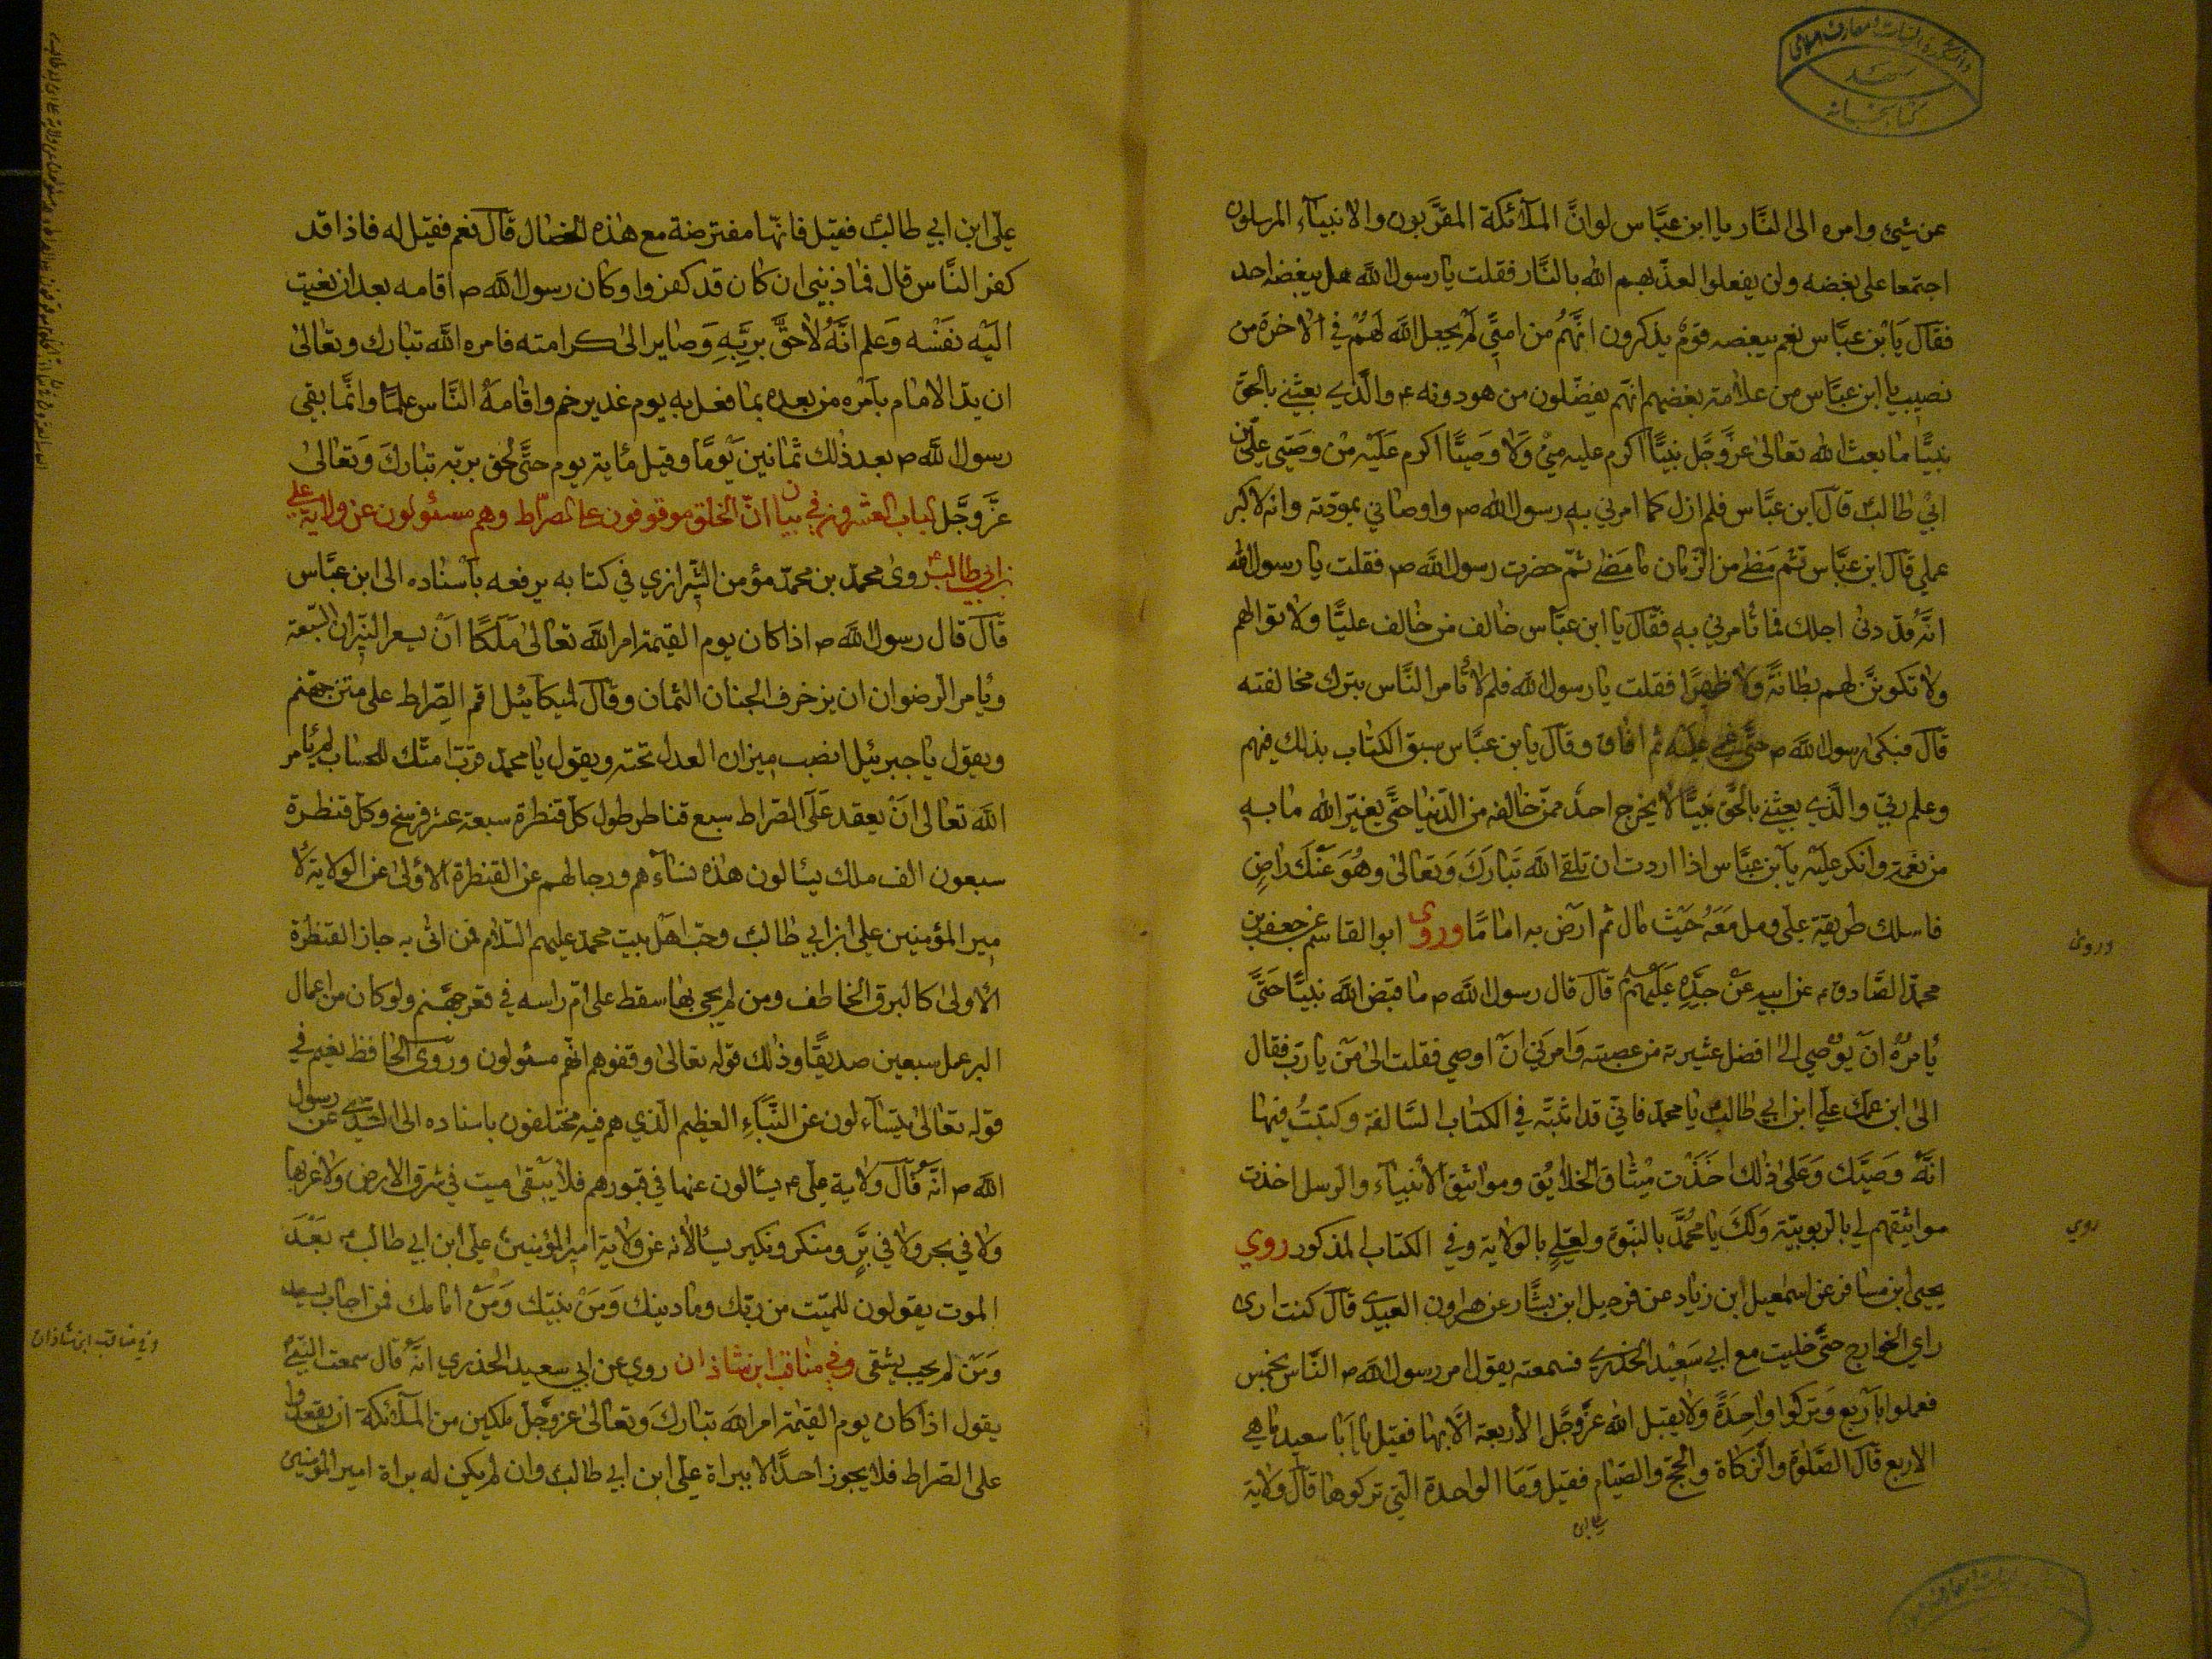 عن شیئ وامره الى النَّار يا ابن عبَّاس لو انَّ الملآئكة المقرَّبون والانبيآء المرسلون
اجتمعا على بغضه ولن يفعلوا لعذّبهم الله بالنَّار فقلت يا رسول الله هل يبغضه احد
فقال يَا بْن عبَّاس نعم يبغضه قومٌ يذكرون انَّهُم من امتي لَم يجعل الله لَهُمْ في الاخرة من
نصيب يا ابن عبَّاس من علامته بغضهم انهم يفضّلون من هو دونه ء والَّذي بعثني بالحق
نبيًّا ما بعث الله تعالىٰ عزَّوجَّل نبيًّا اكرم عليه منّي وَلا وصَيًّا اكرم عَلَيْه مِنْ وصَيّي عليّ بن
ابي طالب قال ابن عبَّاس فلم ازل كما امرني به رسول الله ص واوصاني بمودّته وانه لاكبر
عملي قال ابن عبَّاس ثم مَضىٰ من الزّمان ما مَضىٰ ثمّ حضرت رسول الله ص فقلت يا رسول الله
انَّهُ قد دنىٰ اجلك فما تأمرني به فقال يا ابن عبَّاس خالف من خالف عليًّا ولا توالهم
ولا تكوننّ لهم بطانةً ولا ظهيرًا فقلت يا رسول الله فلم لا تأمر النَّاس بترك مخالفته
قال فبكىٰ رسول الله ص حتَّى غمى عليه ثم افاق وقال يابن عبَّاس سبق الكتاب بذلك فيهم
وعلم ربّي والَّذي بعثني بالحق نبيًّا لا يخرج احدٌ ممّن خالفه من الدّنيا حتَّى يغيّر الله ما به
من نعمة وانكر عليه يَابن عبَّاس اذا اردت ان تلقى الله تَبارَكَ وَتَعٰالىٰ وهُوَ عَنْكَ رٰاضٍ
فاسلك طريقة على ومل مَعَهُ حَيْث مٰال ثم ارض به امٰامًا وروى ابو القاسم عن جعفر بن
محمد الصَّادق ء عن ابيه عَنْ جدِّهِ عَلَيْهم قال قال رسول الله ص ما قبض الله نبيًّا حَتَّى
يٰأمرهُ انْ يوُصي الى افضل عشيرته من عصبته وَامَرَني انْ اوصي فقلت الىٰ مَنْ يا رب فقال
الى ابن عمك علي ابن ابي طالب يا محمد فاني قد اثبتّه في الكتاب السَّالفة وكتبتُ فيها
انَّهُ وَصيّك وَعَلىٰ ذٰلك اخَذْت ميثاق الخلايُق ومواثيق الأنبيآء والرسل اخذت
مواثيقهم لي بالربوبيّة وَلَكَ يا محُمَّد بالنبّوة ولعَلِي بالولاية وفي الكتاب المذكور روي
يحيى ابن مساور عن اسمٰعيل ابن زياد عن فرحيل ابن بشَّار عن هرٰون العبيدي قال كنت ارى
راي الخوارج حتَّى خليت مع ابي سَعيْد الخدري فسمعته يقول امر رسول الله ص النَّاس بخمس
فعملوا بارْبع وتركوا واحدَةً ولا يقبل الله عزَّوجَّل الأربعة الَّا بها فقيل يا اَبٰا سعيد ما هي
الاربع قال الصَّلٰوة والزكاة والحج والصّيام فقيل وَمَا الواحدة التي تركوها قال ولاية
علي ابن
وروى
روي
علي ابن ابي طالب فقيل فانّها مفترضة مع هذه الخصال قال نعم فقيل له فاذا قد
كفر النَّاس قال فما ذنبي ان كان قد كفروا وكان رسول الله ص اقامه بعد ان نعيت
اليْه نفَسْه وَعلم انَّهُ لاٰحقٌ بربّهِ وَصٰاير الىٰ كرامته فامره الله تبارك وتعٰالىٰ
ان يدّ الامام بامره من بعده بما فعل به يوم غدير خم واقامهُ النَّاس علمًا وانَّما بقي
رسول الله ص بعد ذٰلك ثمانين يَوْمًا وقيل مأية يوم حتَّى لحق بربّه تبٰارك وَتعٰالىٰ
عزَّ وجَّل الباب العشرون في بيان انّ الخلق موقوفون على الصّراط وهم مسئولون عن ولاية علي
بن ابي طالب روىٰ محمد بن محمد مؤمن الشّيرازي في كتابه يرفعه باسناده الى ابن عبَّاس
قال قال رسول الله ص اذا كان يوم القيٰمة امر الله تعالىٰ مَلَكًا انْ يسعر النّيران السّبعة
ويٰأمر الرضوان ان يزخرف الجنان الثمان وقال لميكائيل اقم الصّراط على متن جهنّم
ويقول يا جبرئيل انصب ميزان العدل تحته ويقول يا محمد قرّب امتّك للحساب ثم يٰأمر
الله تعالى انَ يعقد عَلَى الصّراط سبع قناطر طول كل قنطرة سبعة عشر فرسخ وكل قنطرة
سبعون الف ملك يسالون هذه نسآءهم ورجالهم عن القنطرة الأولىٰ عن الولاية لا
مير المؤمنين علي ابن ابي طالب وحبّ اهل بيت محمد عليهم السّلام فمن اتى به جاز القنطرة
الأولىٰ كالبرق الخاطف ومن لم يجي بها سقط على ام راسه في قعر جهنّم ولو كان من اعمال
البر عمل سبعين صديقًا وذٰلك قوله تعالىٰ وقفوهم انّهم مسئولون وروى الحافظ نعيم في
قوله تعٰالىٰ يتسآءلون عن النّبَآءِ العظيم الّذي هم فيه مختلفون باسناده الى السّدي عن رسول
الله ص انّهُ قٰال ولاية علي ء يسالون عنها في قبورهم فلا يَبْقىٰ ميت في شرق الارض ولا غربها
ولا في بحر ولا في برٍّ ومنكر ونكير يسألانه عن ولاية امير المؤمنين علي ابن ابي طالب ء بَعْدَ
الموت يقولون للميّت من ربّك وما دينك وَمَنْ نبيّك وَمَنْ امامك فمن اجاب يسعد
وَمَن لم يجب يشقى وفي مناقب ابن شاذان روي عن ابي سعيد الخدري انّهُ قال سمعت النبيّ
يقول اذا كان يوم القيٰمة امر الله تبارَكَ وَتعٰالىٰ عزوَّجَّل ملكين من الملآئكة ان يقعدوا
على الصّراط فلا يجوز احدًا الا ببراة علي ابن ابي طالب وان لم يكن له براة امير المؤمنين
وفي مناقب ابن شاذان
كتابخانه